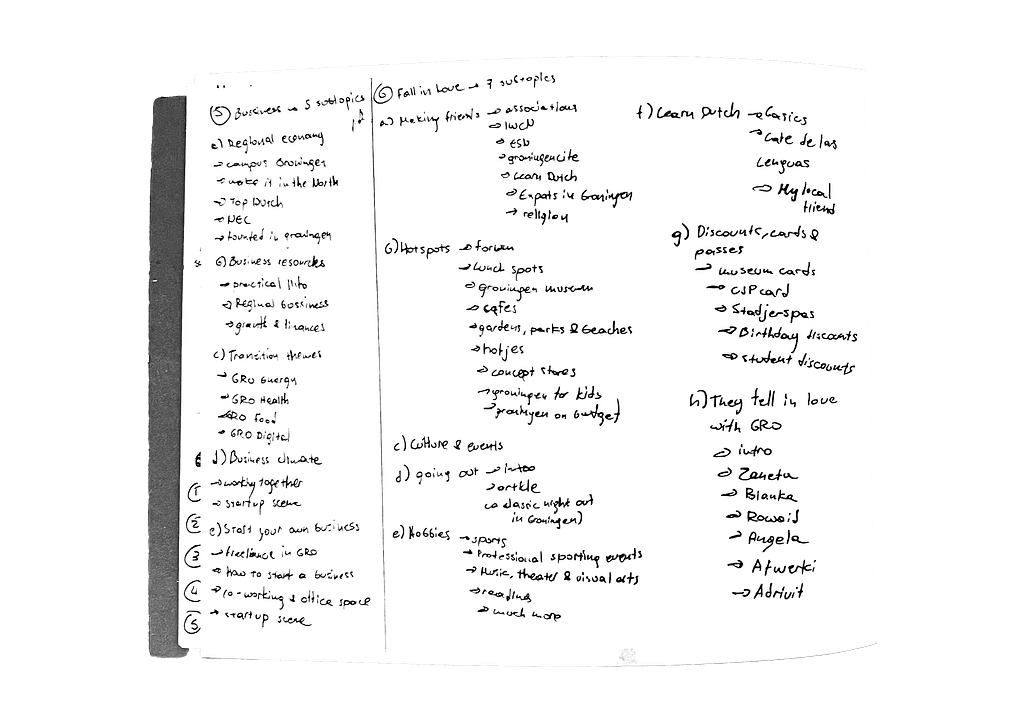 ⑤ Business → 5 subtopics
a) Regional economy
→ campus Groningen
→ make it in the North
→ Top Dutch
→ NEC
→ founted in groningen
b) Business resources
→ practical info
→ Reginal bussiness
→ grauth & finances
c) Transition themes
→ GRO Energy
→ GRO Health
→ GRO Food
→ GRO Digital
d) Business climate
→ working together
→ startup scene
e) Start your own business
→ freelance in GRO
→ How to start a business
→ co-working & office space
→ startup scene
①
②
③
④
⑤
⑥ Fall in Love → 7 subtopics
a) Making friends → associations
→ IWCN
→ ESN
→ groningenlife
→ Learn Dutch
→ Expats in Groningen
→ religion
b) Hotspots → forum
→ Lunch spots
→ groningen museum
→ cafes
→ gardens, parks & beaches
→ hofjes
→ concept stores
→ groningen for kids
→ groningen on budget
c) Culture & events
d) going out → intro
→ article
(a classic night out
in Groningen)
e) Hobbies → sports
→ Professional sporting events
→ Music, theater & visual arts
→ reading
→ much more
f) Learn Dutch → basics
→ Cafe de las
Lenguas
→ My local
friend
g) Discounts, cards &
passes
→ museum cards
→ CJP card
→ Stadjerspas
→ Birthday discounts
→ student discounts
h) They fell in love
with GRO
→ intro
→ Zaneta
→ Blanka
→ Angela
→ Afwerki